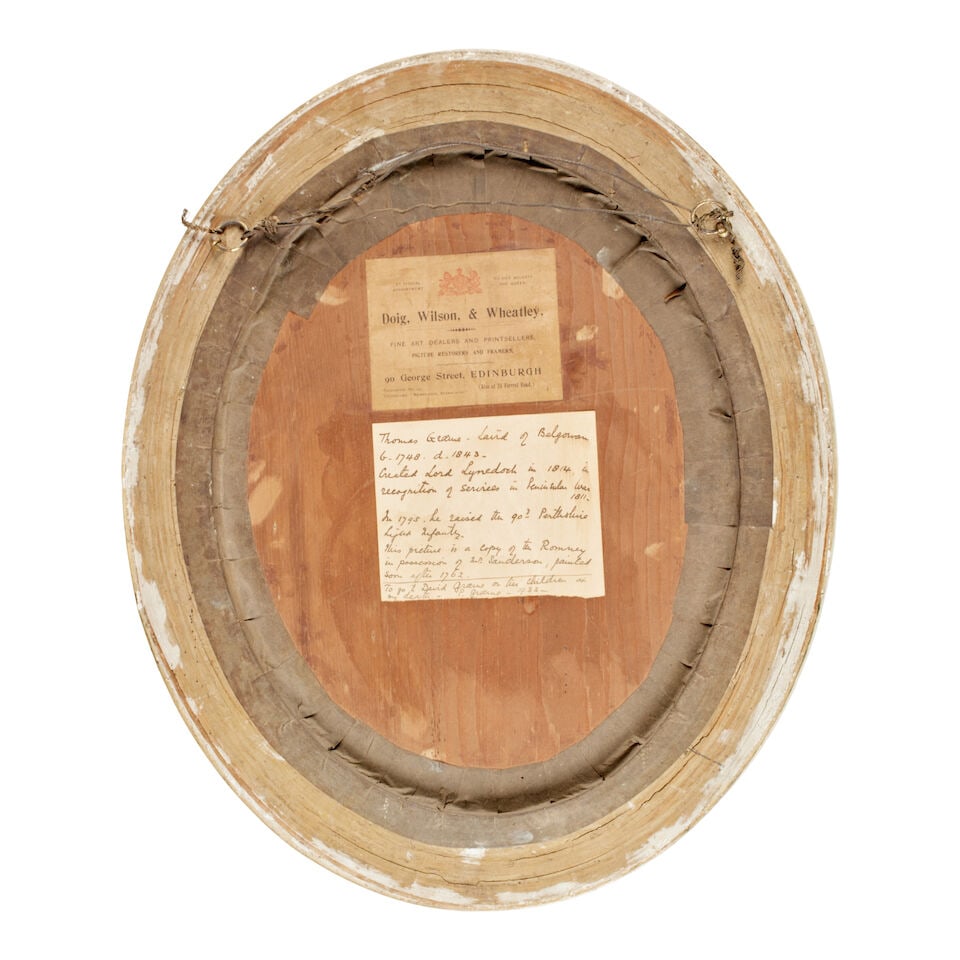 BY SPECIAL APPOINTMENT
TO HER MAJESTY THE QUEEN
Doig, Wilson, & Wheatley,
FINE ART DEALERS AND PRINTSELLERS,
PICTURE RESTORERS AND FRAMERS,
90 George Street, EDINBURGH
(Also at 25 Forrest Road.)
Thomas Graeme. Laird of Balgowan
b. 1748. d. 1843.
Created Lord Lynedoch in 1814 in
recognition of services in Peninsular War
1811.
In 1795, he raised the 90th Perthshire
Light Infantry.
This picture is a copy of the Romney
in possession of Mr. Sanderson, painted
som after 1762.
To go to David Graeme or his children on
my death. Graeme